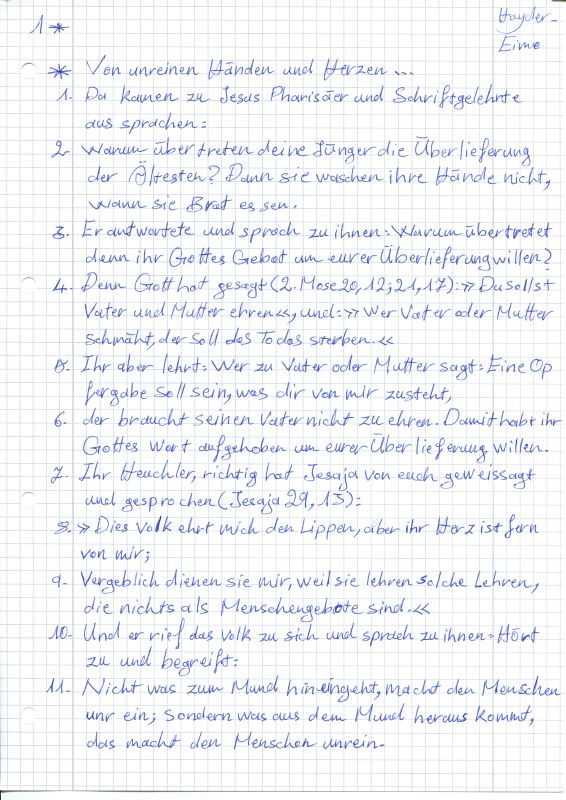 Hayder-
1 *
Eime
* Von unreinen Händen und Herzen ...
1. Da kamen zu Jesus Pharisäer und Schriftgelehrte
aus sprachen:
2. Warum übertreten deine Jünger die Überlieferung
der Ältesten? Dann sie waschen ihre Hände nicht,
wann sie Brot essen.
3. Er antwortete und sprach zu ihnen: Warum übertretet
denn ihr Gottes Gebot um eurer Überlieferung willen?
4. Denn Gott hat gesagt (2. Mose 20, 12; 21, 17): >> Du sollst
Vater und Mutter ehren <<, und: >> Wer Vater oder Mutter
schmäht, der soll des Todes sterben. <<
5. Ihr aber lehrt: Wer zu Vater oder Mutter sagt: Eine Op
fergabe soll sein, was dir von mir zusteht,
6. der braucht seinen Vater nicht zu ehren. Damit habt ihr
Gottes Wort aufgehoben um eurer Überlieferung willen.
7. Ihr Heuchler, richtig hat Jesaja von euch geweissagt
und gesprochen (Jesaja 29, 13):
8. >> Dies Volk ehrt mich den Lippen, aber ihr Herz ist fern
von mir;
9. Vergeblich dienen sie mir, weil sie lehren solche Lehren,
die nichts als Menschengebote sind. <<
10. Und er rief das Volk zu sich und sprach zu ihnen: Hört
zu und begreift:
11. Nicht was zum Mund hineingeht, macht den Menschen
unrein; sondern was aus dem Mund heraus kommt,
das macht den Menschen unrein.